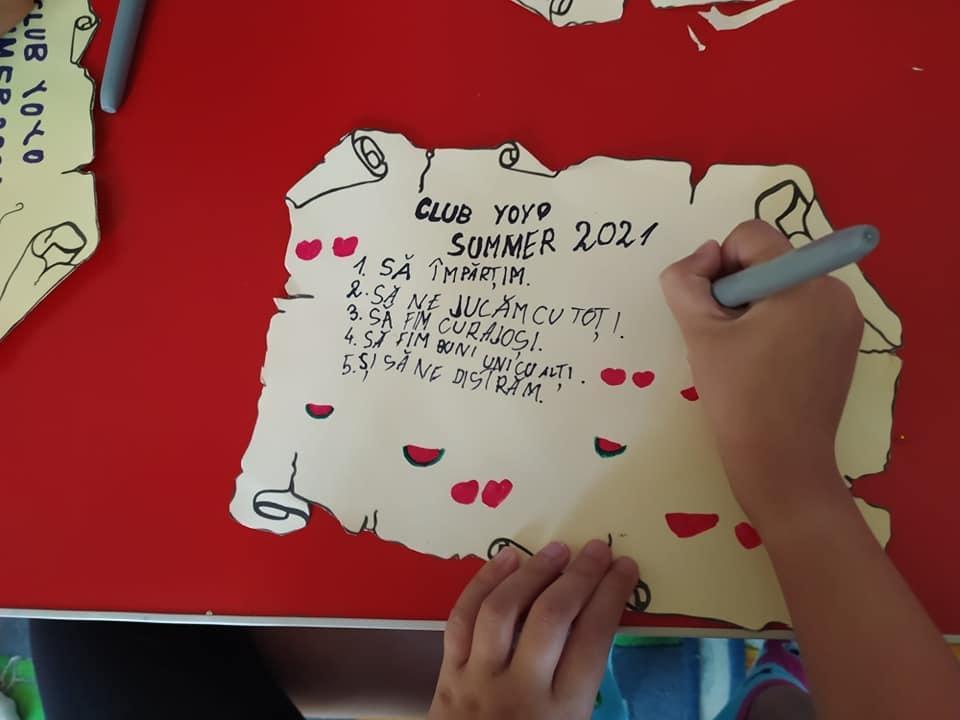 CLUB YOYO
SUMMER 2021
1. SĂ ÎMPĂRȚIM.
2. SĂ NE JUCĂM CU TOȚI.
3. SĂ FIM CURAJOȘI.
4. SĂ FIM BUNI UNI CU ALȚI.
5. ȘI SĂ NE DISTRĂM.
CLUB YOYO